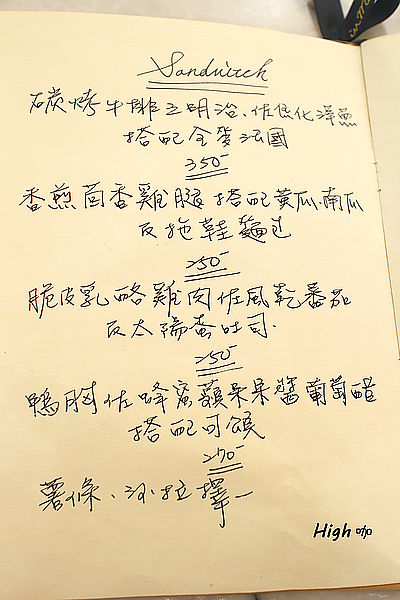 Sandwich
碳烤牛排三明治、佐焦化洋蔥
搭配全麥法國
350-
香煎茴香雞腿搭配黃瓜.南瓜
及拖鞋麵包
250-
脆皮乳酪雞肉佐風乾番茄
及太陽蛋吐司.
250-
鴨胸佐蜂蜜蘋果果醬葡萄醋
搭配可頌
270-
薯條、沙拉擇一
High 咖